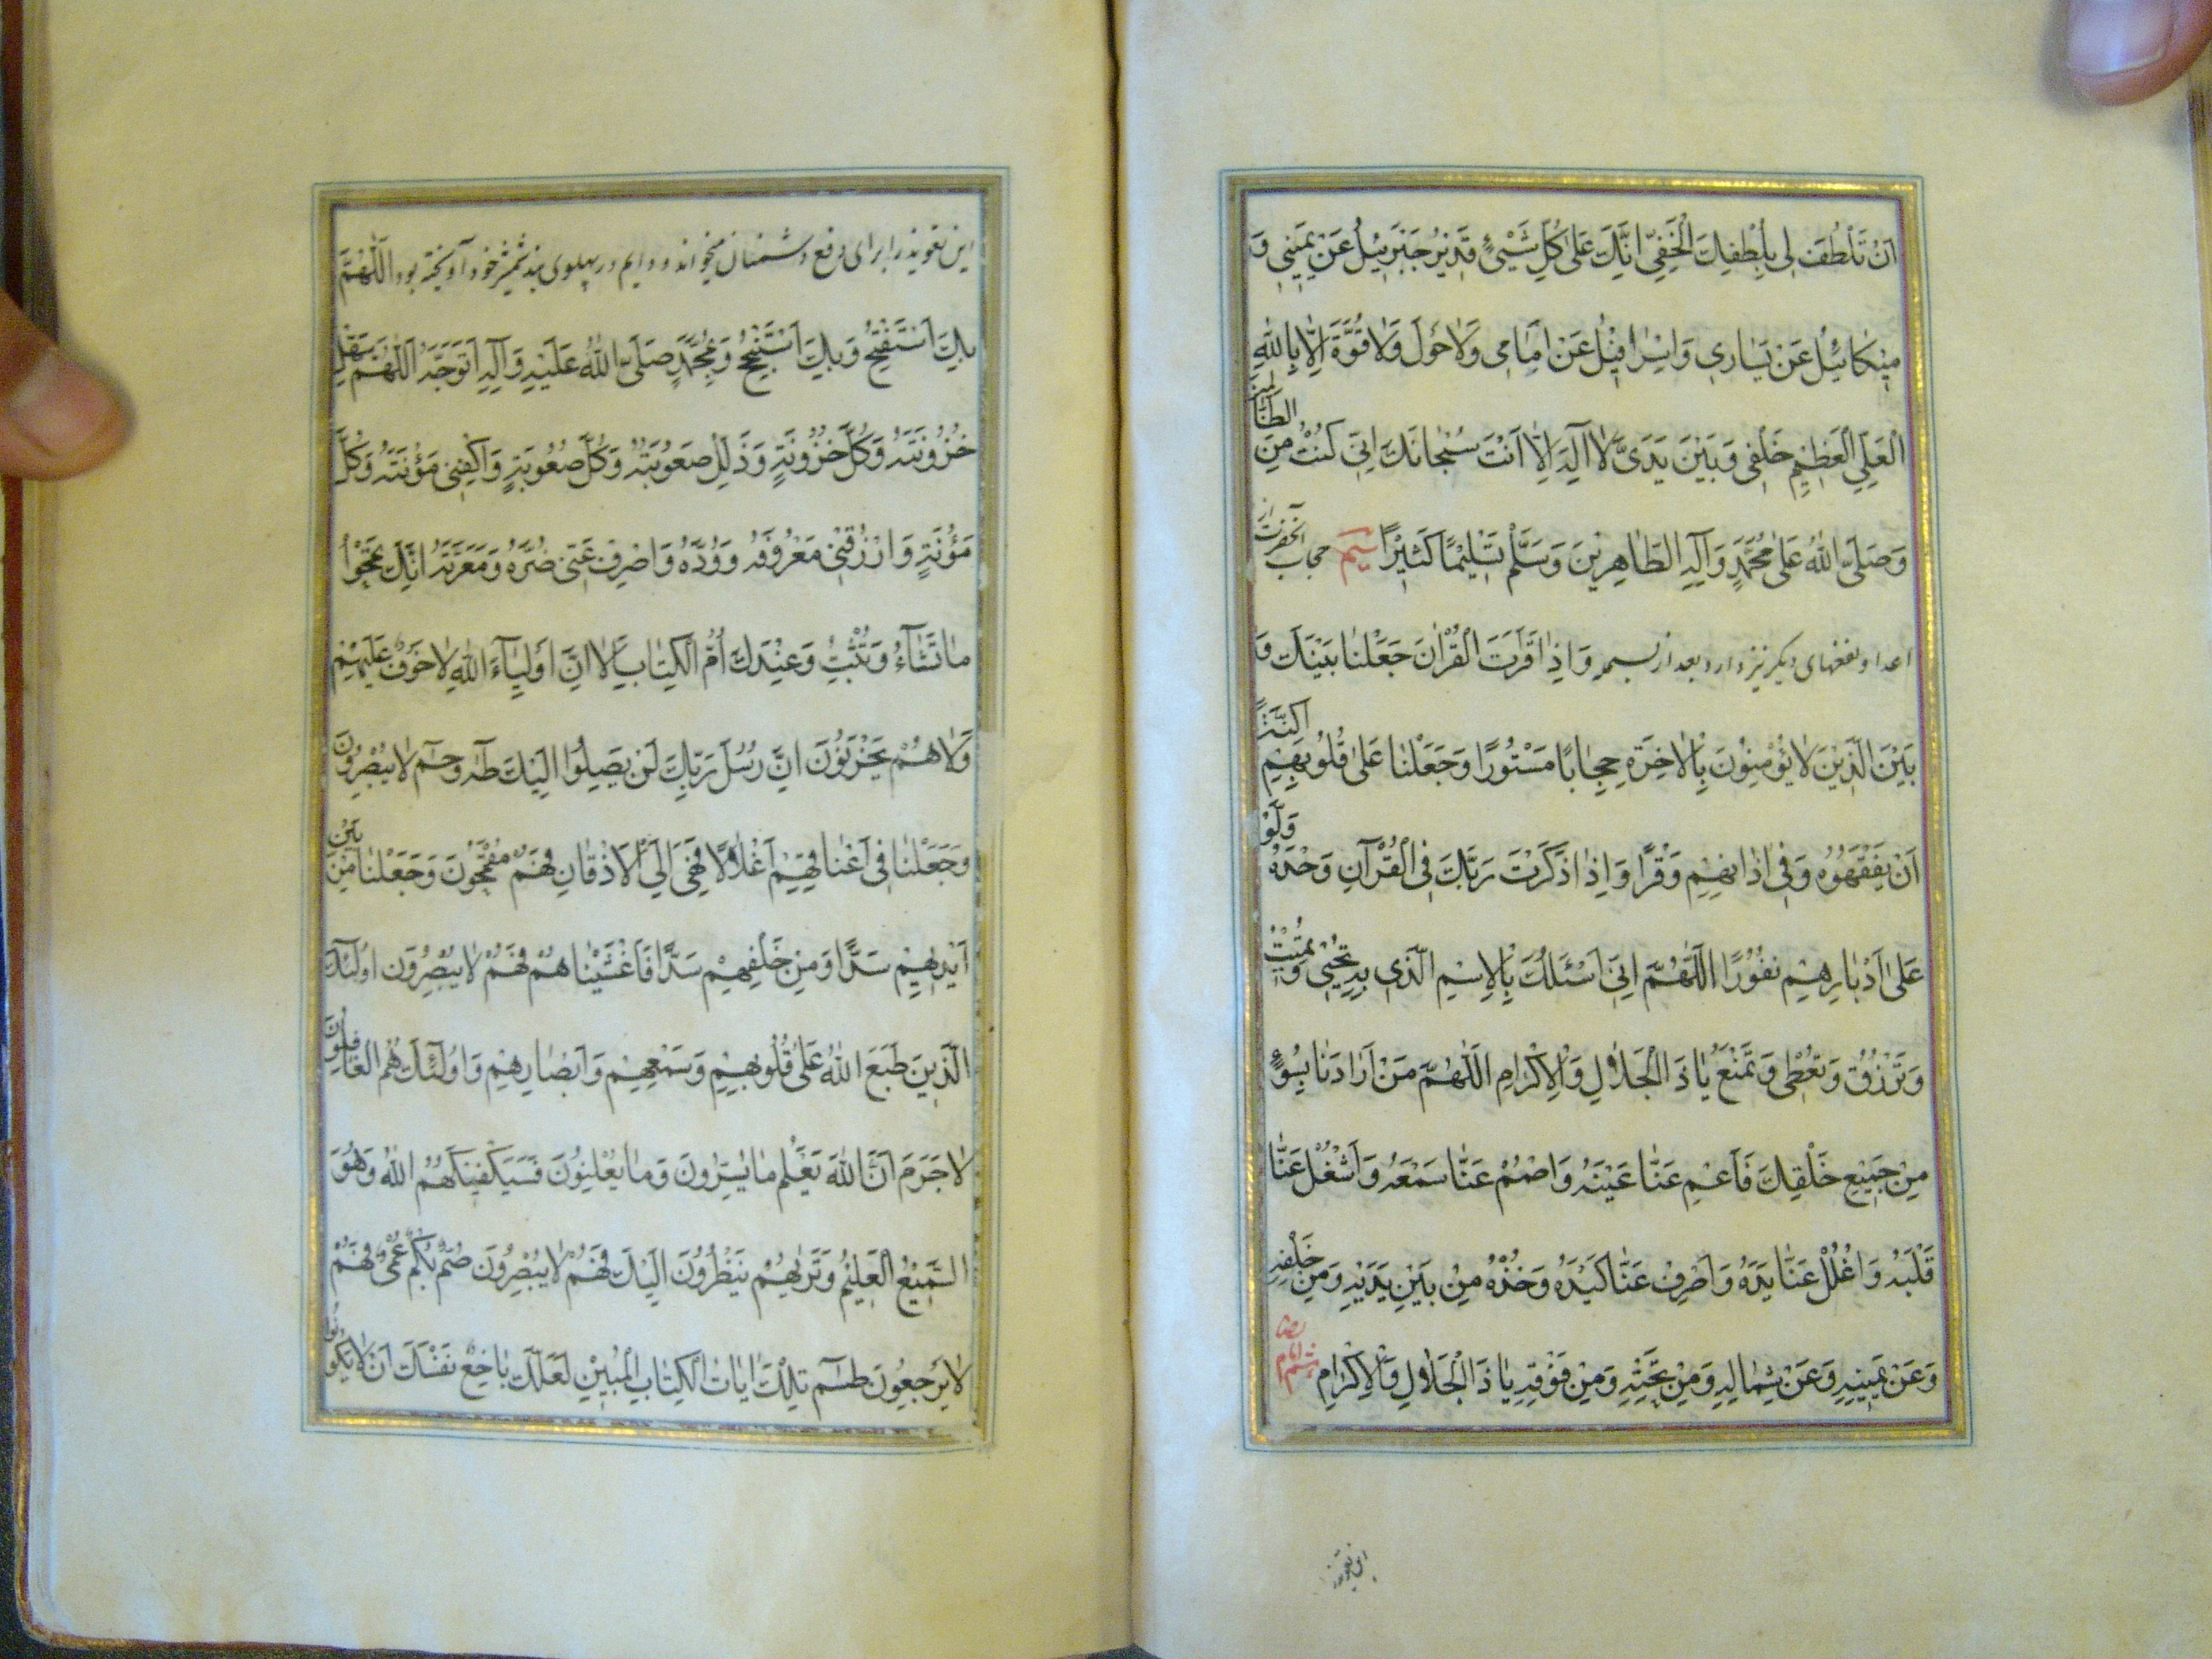 اَنْ تَلْطُفَ لِی بِلُطْفِكَ الْخَفِیِّ اِنَّكَ عَلیٰ كُلِّ شَیْیءٍ قَدِیرٌ جَبْرَئِیْلُ عَنْ یَمِیْنِی وَ
مِیْكَائِیْلُ عَنْ یَسَارِی وَ اِسْرَافِیْلُ عَنْ اَمَامِی وَلَاحَوْلَ وَلَا قُوَّةَ اِلَّا بِاللّٰهِ
الْعَلِیِّ الْعَظِیْمِ خَلْفِی وَبَیْنَ یَدَیَّ لَا اِلٰهَ اِلَّا اَنْتَ سُبْحٰانَكَ اِنِّی كُنْتُ مِنَ الظَّالِمِیْنَ
وَصَلَّی اللّٰهُ عَلیٰ مُحَمَّدٍ وَآلِهِ الطَّاهِرِیْنَ وَسَلَّمَ تَسْلِیْمًا كَثِیْرًا حجاب آنحضرت از
اعدا و نفعهای دیكر نیز دارد بعد از بسمله وَاِذٰا قَرَأْتَ الْقُرْاٰنَ جَعَلْنٰا بَیْنَكَ وَ
بَیْنَ الَّذِیْنَ لَا یُؤْمِنُوْنَ بِالْاٰخِرَةِ حِجٰابًا مَسْتُورًا وَجَعَلْنٰا عَلیٰ قُلُوْبِهِمْ اَكِنَّةً
اَنْ یَفْقَهُوْهُ وَفِی اٰذٰانِهِمْ وَقْرًا وَاِذٰا ذَكَرْتَ رَبَّكَ فِی الْقُرْآنِ وَحْدَهُ وَلَّوْا
عَلیٰ اَدْبٰارِهِمْ نُفُوْرًا اَللّٰهُمَّ اِنِّی اَسْئَلُكَ بِالْاِسْمِ الَّذِی بِهِ تُحْیِیْ وَتُمِیْتُ
وَتَرْزُقُ وَتُعْطِی وَتَمْنَعُ یٰا ذَا الْجَلَالِ وَالْاِكْرَامِ اَللّٰهُمَّ مَنْ اَرَادَنٰا بِسُوْءٍ
مِنْ جَمِیْعِ خَلْقِكَ فَاَعْمِ عَنَّا عَیْنَهُ وَاصْمُمْ عَنَّا سَمْعَهُ وَاَشْغُلْ عَنَّا
قَلْبَهُ وَاغْلُلْ عَنَّا یَدَهُ وَاصْرِفْ عَنَّا كَیْدَهُ وَخُذْهُ مِنْ بَیْنِ یَدَیْهِ وَمِنْ خَلْفِهِ
وَعَنْ یَمِیْنِهِ وَعَنْ شِمٰالِهِ وَمِنْ تَحْتِهِ وَمِنْ فَوْقِهِ یٰا ذَا الْجَلَالِ وَالْاِكْرَامِ
این تعویذ
این تعویذ را برای دفع دشمنان میخوانند و دایم در پهلوی بند شمشیر خود آویخته بود اَللّٰهُمَّ
بِكَ اَسْتَفْتِحُ وَبِكَ اَسْتَنْجِحُ وَبِمُحَمَّدٍ صَلَّی اللّٰهُ عَلَیْهِ وَآلِهِ اَتَوَجَّهُ اَللّٰهُمَّ سَهِّلْ لِی
حُزُوْنَتَهُ وَكُلَّ حُزُوْنَةٍ وَذَلِّلْ صُعُوبَتَهُ وَكُلَّ صُعُوبَةٍ وَاكْفِنِی مَؤُنَتَهُ وَكُلَّ
مَؤُنَةٍ وَارْزُقْنِی مَعْرُوْفَهُ وَوُدَّهُ وَاصْرِفْ عَنِّی ضُرَّهُ وَمَعَرَّتَهُ اِنَّكَ تَمْحُوْا
مٰا تَشٰآءُ وَتُثْبِتُ وَعِنْدَكَ اُمُّ الْكِتٰابِ اَلَا اِنَّ اَوْلِیَآءَ اللّٰهِ لَا خَوْفٌ عَلَیْهِمْ
وَلَا هُمْ یَحْزَنُوْنَ اِنَّ رُسُلَ رَبِّكَ لَنْ یَصِلُوْا اِلَیْكَ طٰهٰ وحٰمٓ لَا یُبْصِرُوْنَ
وَجَعَلْنٰا فِی اَعْنٰاقِهِمْ اَغْلَالًا فَهِیَ اِلَی الْاَذْقَانِ فَهُمْ مُقْمَحُوْنَ وَجَعَلْنٰا مِنْ بَیْنِ
اَیْدِیْهِمْ سَدًّا وَمِنْ خَلْفِهِمْ سَدًّا فَاَغْشَیْنٰاهُمْ فَهُمْ لَا یُبْصِرُوْنَ اُولٰئِكَ
الَّذِیْنَ طَبَعَ اللّٰهُ عَلیٰ قُلُوْبِهِمْ وَسَمْعِهِمْ وَاَبْصٰارِهِمْ وَاُولٰئِكَ هُمُ الْغَافِلُوْنَ
لَا جَرَمَ اَنَّ اللّٰهَ یَعْلَمُ مٰا یُسِرُّونَ وَمٰا یُعْلِنُوْنَ فَسَیَكْفِیْكَهُمُ اللّٰهُ وَهُوَ
السَّمِیْعُ الْعَلِیْمُ وَتَرٰیهُمْ یَنْظُرُوْنَ اِلَیْكَ فَهُمْ لَا یُبْصِرُوْنَ صُمٌّ بُكْمٌ عُمْیٌ فَهُمْ
لَا یَرْجِعُوْنَ طٰسٓمٓ تِلْكَ اٰیٰاتُ الْكِتٰابِ الْمُبِیْنِ لَعَلَّكَ بٰاخِعٌ نَفْسَكَ اَنْ لَا یَكُوْنُوا